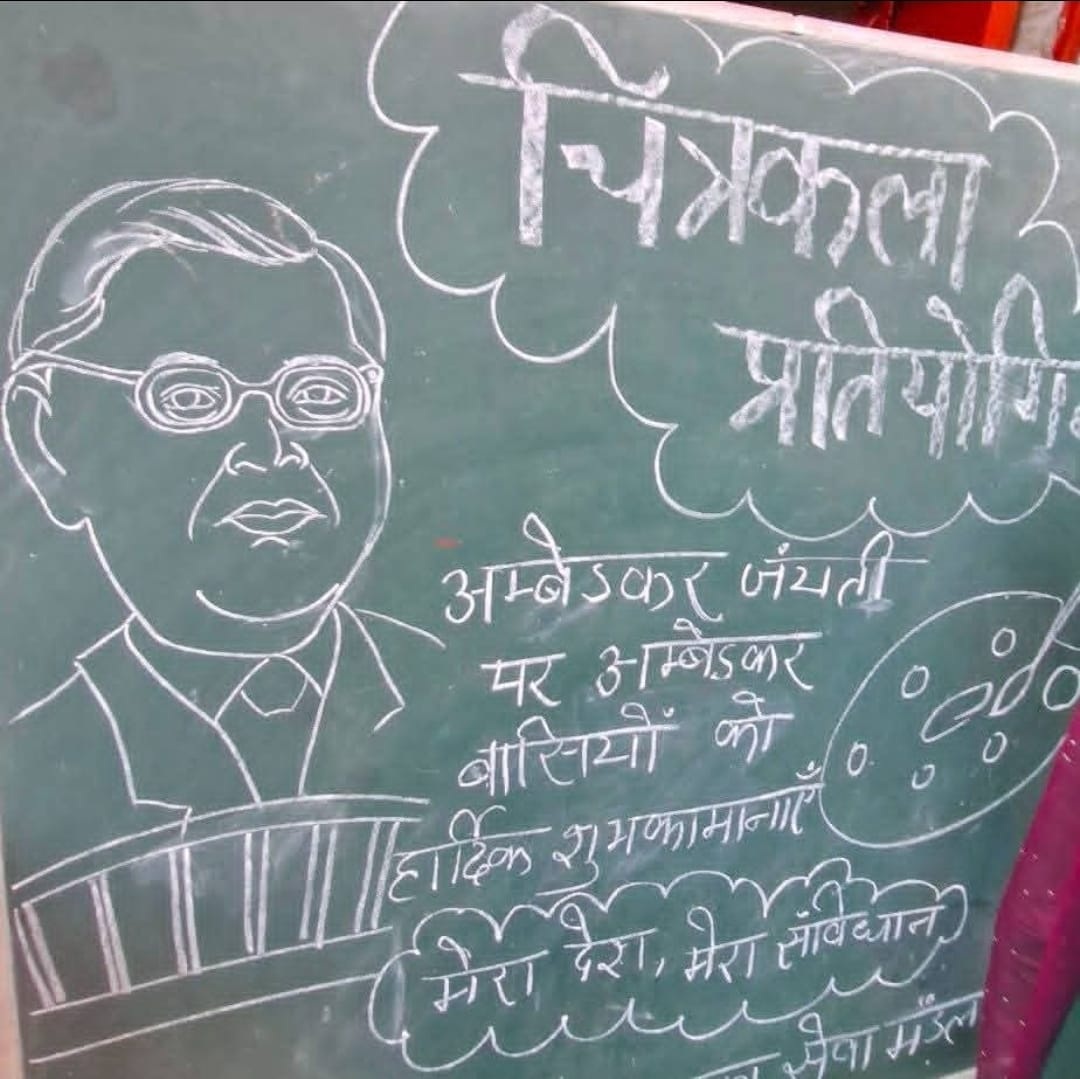 चित्रकला
प्रतियोगि
अम्बेडकर जंयती
पर अम्बेडकर
बासियों को
हार्दिक शुभकामानाएँ
मेरा देश, मेरा संविधान
सेवा मंडल